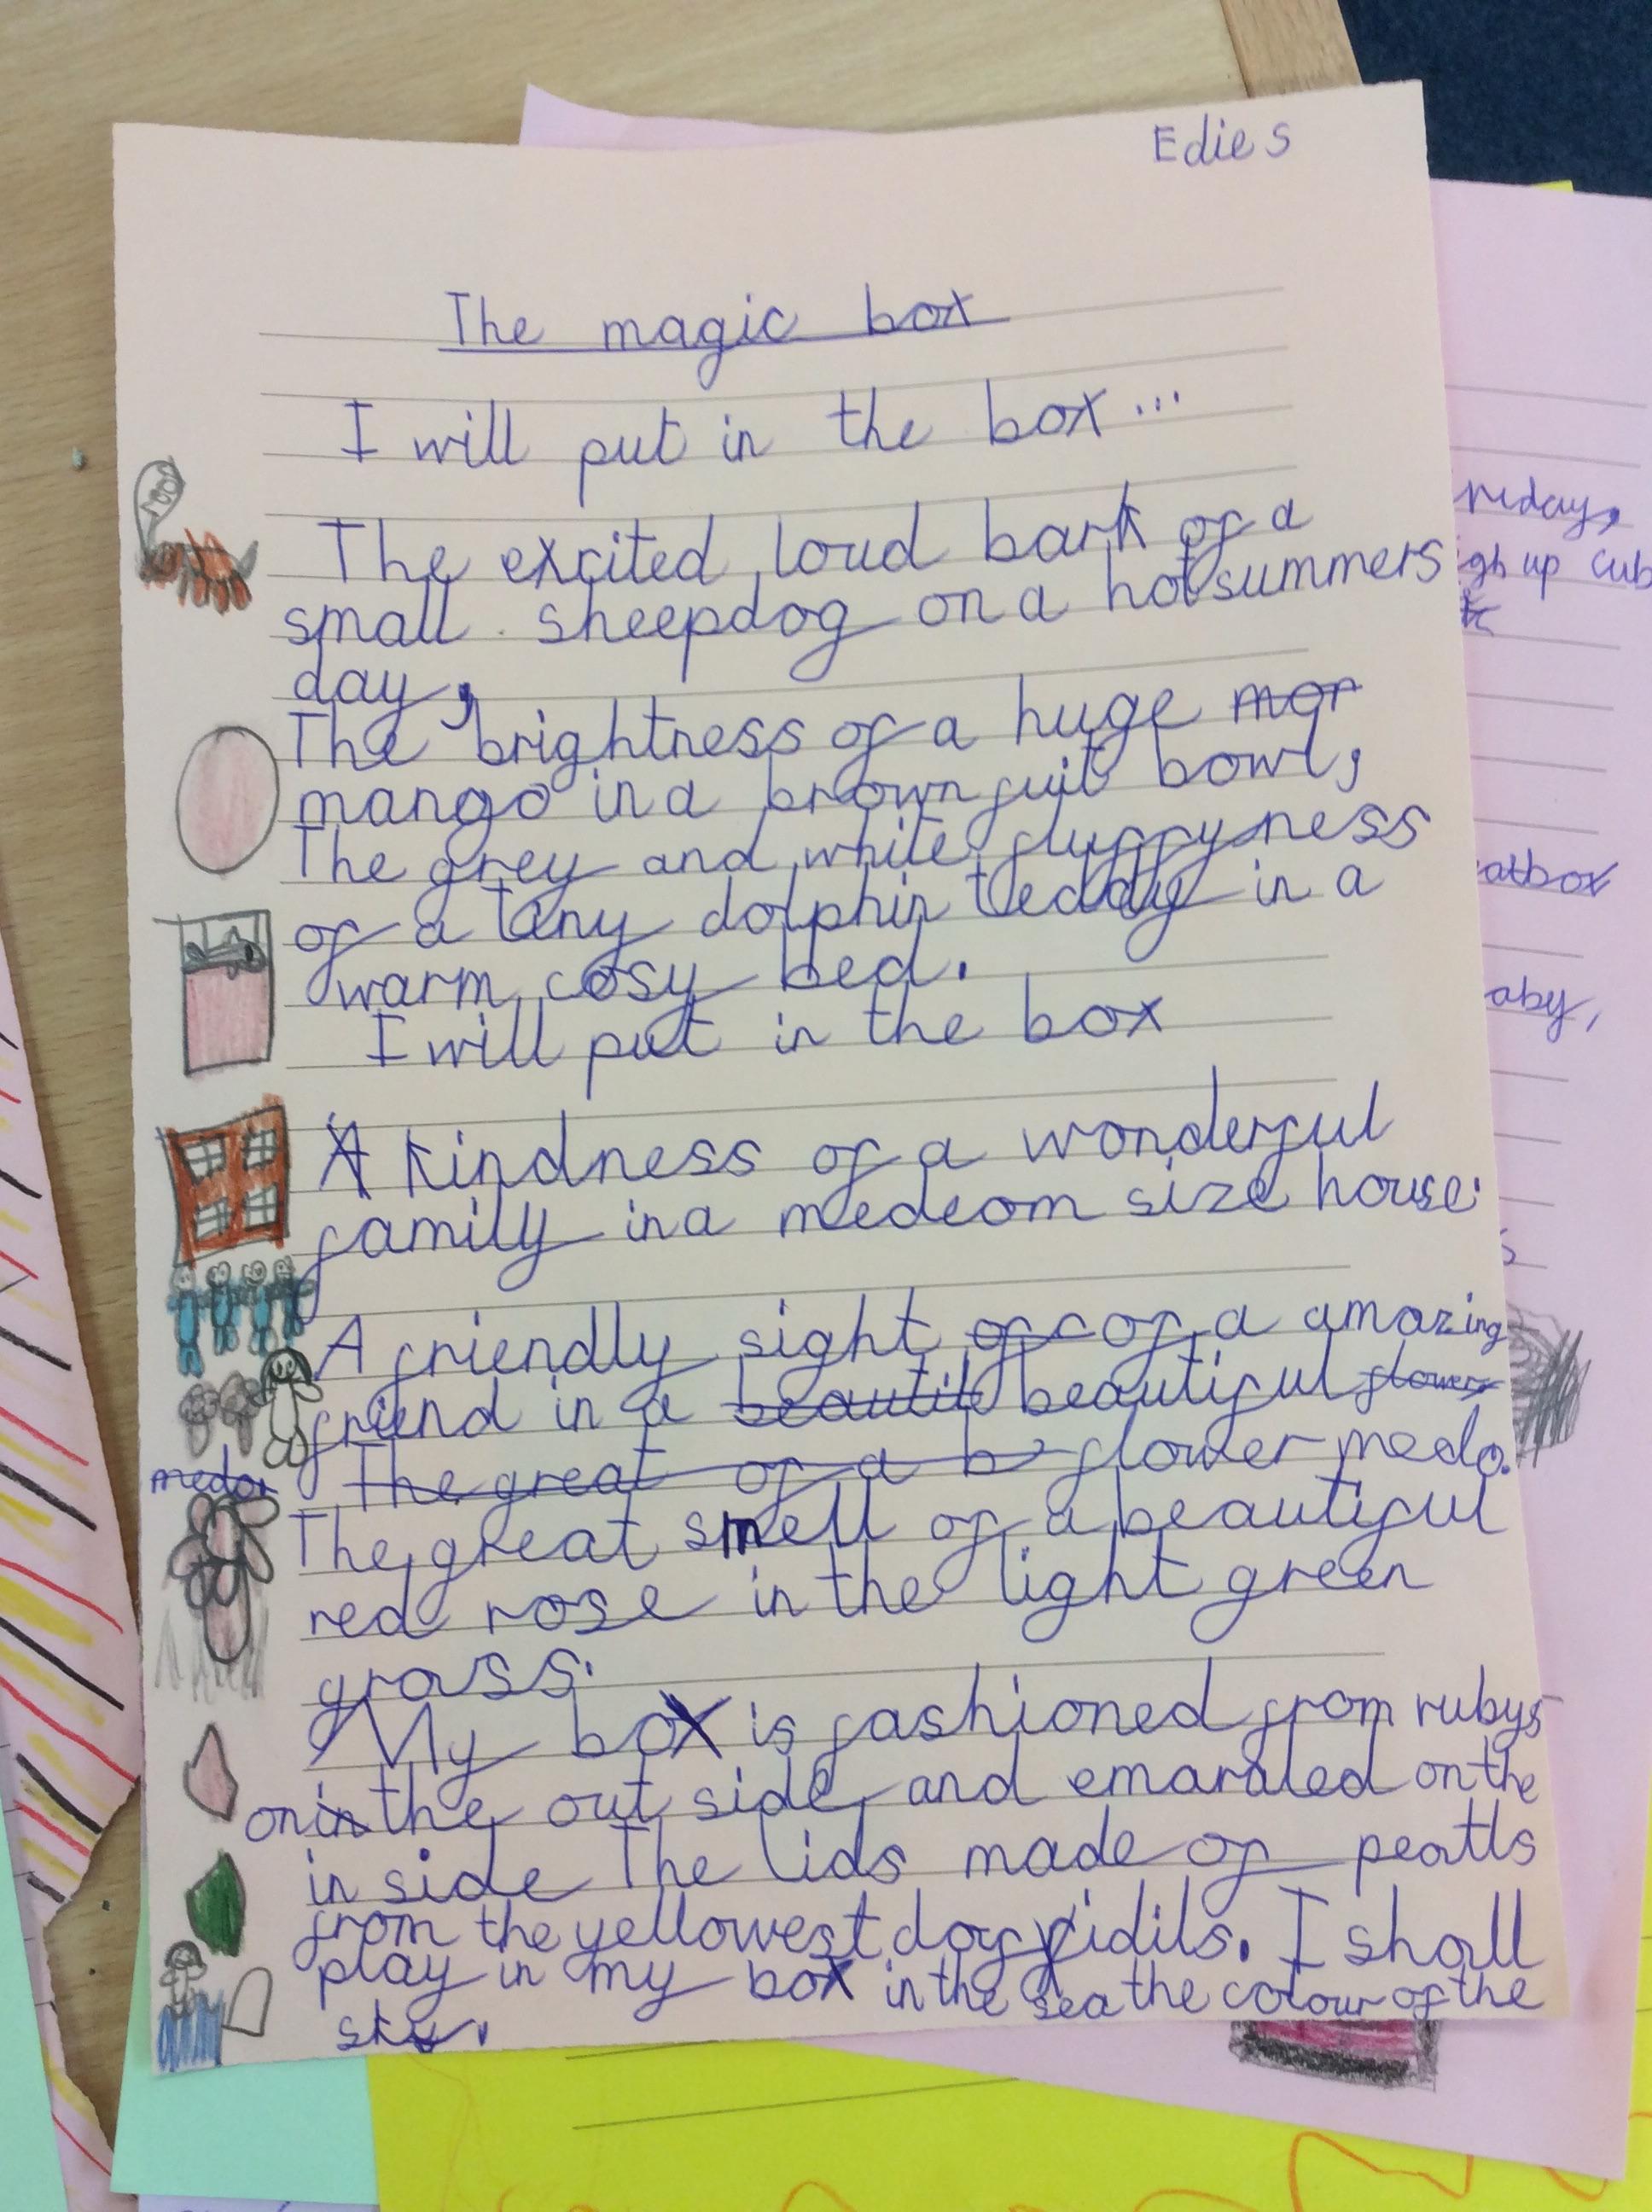 Edie S
The magic box
I will put in the box...
The excited loud bark of a
small sheepdog on a hot summers
day,
The brightness of a huge mor
mango in a brown fuit bowl,
The grey and white fluffyness
of a tiny dolphin teddy in a
warm cosy bed.
I will put in the box
A kindness of a wonderful
family in a medeom size house.
A friendly sight of of a amazing
friend in a beautil beautiful flowers
The great of a b flower medo.
medor
The great smell of a beautiful
red rose in the light green
grass.
My box is fashioned from rubys
on in the out side and emaraled on the
in side The lids made of pearls
from the yellowest doffidils. I shall
play in my box in the sea the colour of the
sky.
riday,
igh up cub
atbox
aby,
s